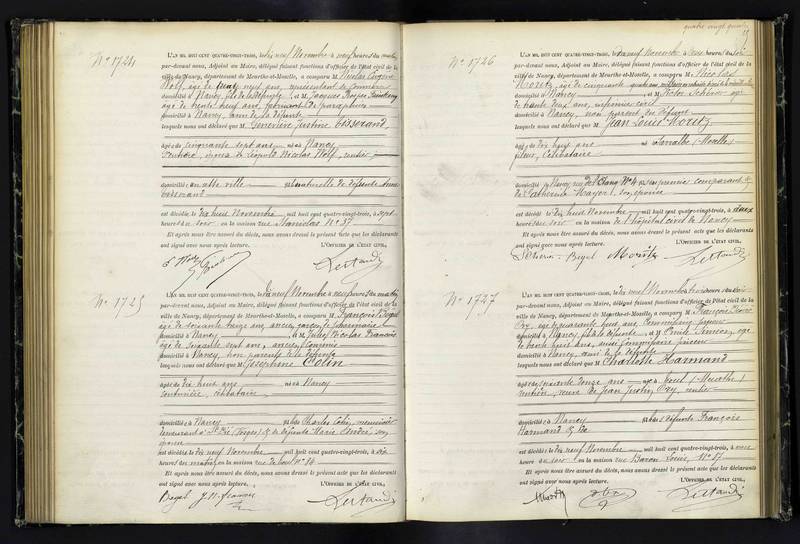 quatre vingt quinze
N° 1724
L'AN MIL HUIT CENT QUATRE-VINGT-TROIS, le dix neuf Novembre à neuf heures du matin
par-devant nous, Adjoint au Maire, délégué faisant fonctions d'officier de l'état civil de la
ville de Nancy, département de Meurthe-et-Moselle, a comparu M. Nicolas Eugène
Wolf, âgé de trente neuf ans, représentant de commerce
domicilié à Nancy, fils de la défunte, et M. Jacques
âgé de trente neuf ans, fabricant de parapluies
domicilié à Nancy, ami de la défunte
lesquels nous ont déclaré que M. Geneviève Justine
âgée de cinquante sept ans née à Nancy
épouse de Léopold Nicolas Wolf, rentier
domiciliée en cette ville fille naturelle de défunte Anne
est décédée le dix huit Novembre mil huit cent quatre-vingt-trois, à sept
heures du soir en la maison rue Stanislas N° 57
Et après nous être assuré du décès, nous avons dressé le présent acte que les déclarants
ont signé avec nous après lecture. L'OFFICIER DE L'ÉTAT CIVIL,
N° 1725
L'AN MIL HUIT CENT QUATRE-VINGT-TROIS, le dix neuf Novembre à neuf heures du matin
par-devant nous, Adjoint au Maire, délégué faisant fonctions d'officier de l'état civil de la
ville de Nancy, département de Meurthe-et-Moselle, a comparu M. François Bégel
âgé de soixante treize ans, ancien garçon de pharmacie
domicilié à Nancy, et M. Jules Nicolas François
âgé de soixante sept ans, ancien Commis
domicilié à Nancy, non parents de la défunte
lesquels nous ont déclaré que M. Joséphine Colin
âgée de dix huit ans née à Nancy
couturière, célibataire
domiciliée à Nancy fille de Charles Colin, menuisier
demeurant à St Dié (Vosges) & de défunte Marie son
épouse
est décédée le dix neuf Novembre mil huit cent quatre-vingt-trois, à six
heures du matin en la maison rue de Toul N° 14
Et après nous être assuré du décès, nous avons dressé le présent acte que les déclarants
ont signé avec nous après lecture. L'OFFICIER DE L'ÉTAT CIVIL,
Begel J. N. françois
N° 1726
L'AN MIL HUIT CENT QUATRE-VINGT-TROIS, le dix neuf Novembre à heures du
par-devant nous, Adjoint au Maire, délégué faisant fonctions d'officier de l'état civil de la
ville de Nancy, département de Meurthe-et-Moselle, a comparu M. Nicolas
Moritz, âgé de cinquante
domicilié à Nancy et M. Victor âgé
de trente deux ans, infirmier civil
domicilié à Nancy, non parent du défunt
lesquels nous ont déclaré que M. Jean Louis Moritz
âgé de dix huit ans né à (Moselle)
célibataire
domicilié à Nancy, rue de l'Etang N° 4 fils du premier comparant &
de Catherine Mayer, son épouse
est décédé le dix huit Novembre mil huit cent quatre-vingt-trois, à deux
heures du soir en la maison de l'hôpital civil de Nancy
Et après nous être assuré du décès, nous avons dressé le présent acte que les déclarants
ont signé avec nous après lecture. L'OFFICIER DE L'ÉTAT CIVIL,
Moritz
N° 1727
L'AN MIL HUIT CENT QUATRE-VINGT-TROIS, le dix neuf Novembre à heures du soir
par-devant nous, Adjoint au Maire, délégué faisant fonctions d'officier de l'état civil de la
ville de Nancy, département de Meurthe-et-Moselle, a comparu M. François
Ory, âgé de quarante huit ans, Commissaire priseur
domicilié à Nancy, fils de la défunte et M. Emile Simon, âgé
de trente huit ans, aussi Commissaire priseur
domicilié à Nancy, ami de la défunte
lesquels nous ont déclaré que M. Charlotte Harmand
âgée de soixante douze ans née à Toul (Meurthe)
rentière, veuve de Jean Justin Ory, rentier
domiciliée à Nancy fille des défunts François
Harmand &
est décédée le dix neuf Novembre mil huit cent quatre-vingt-trois, à onze
heures du en la maison rue Baron Louis, N° 17
Et après nous être assuré du décès, nous avons dressé le présent acte que les déclarants
ont signé avec nous après lecture. L'OFFICIER DE L'ÉTAT CIVIL,